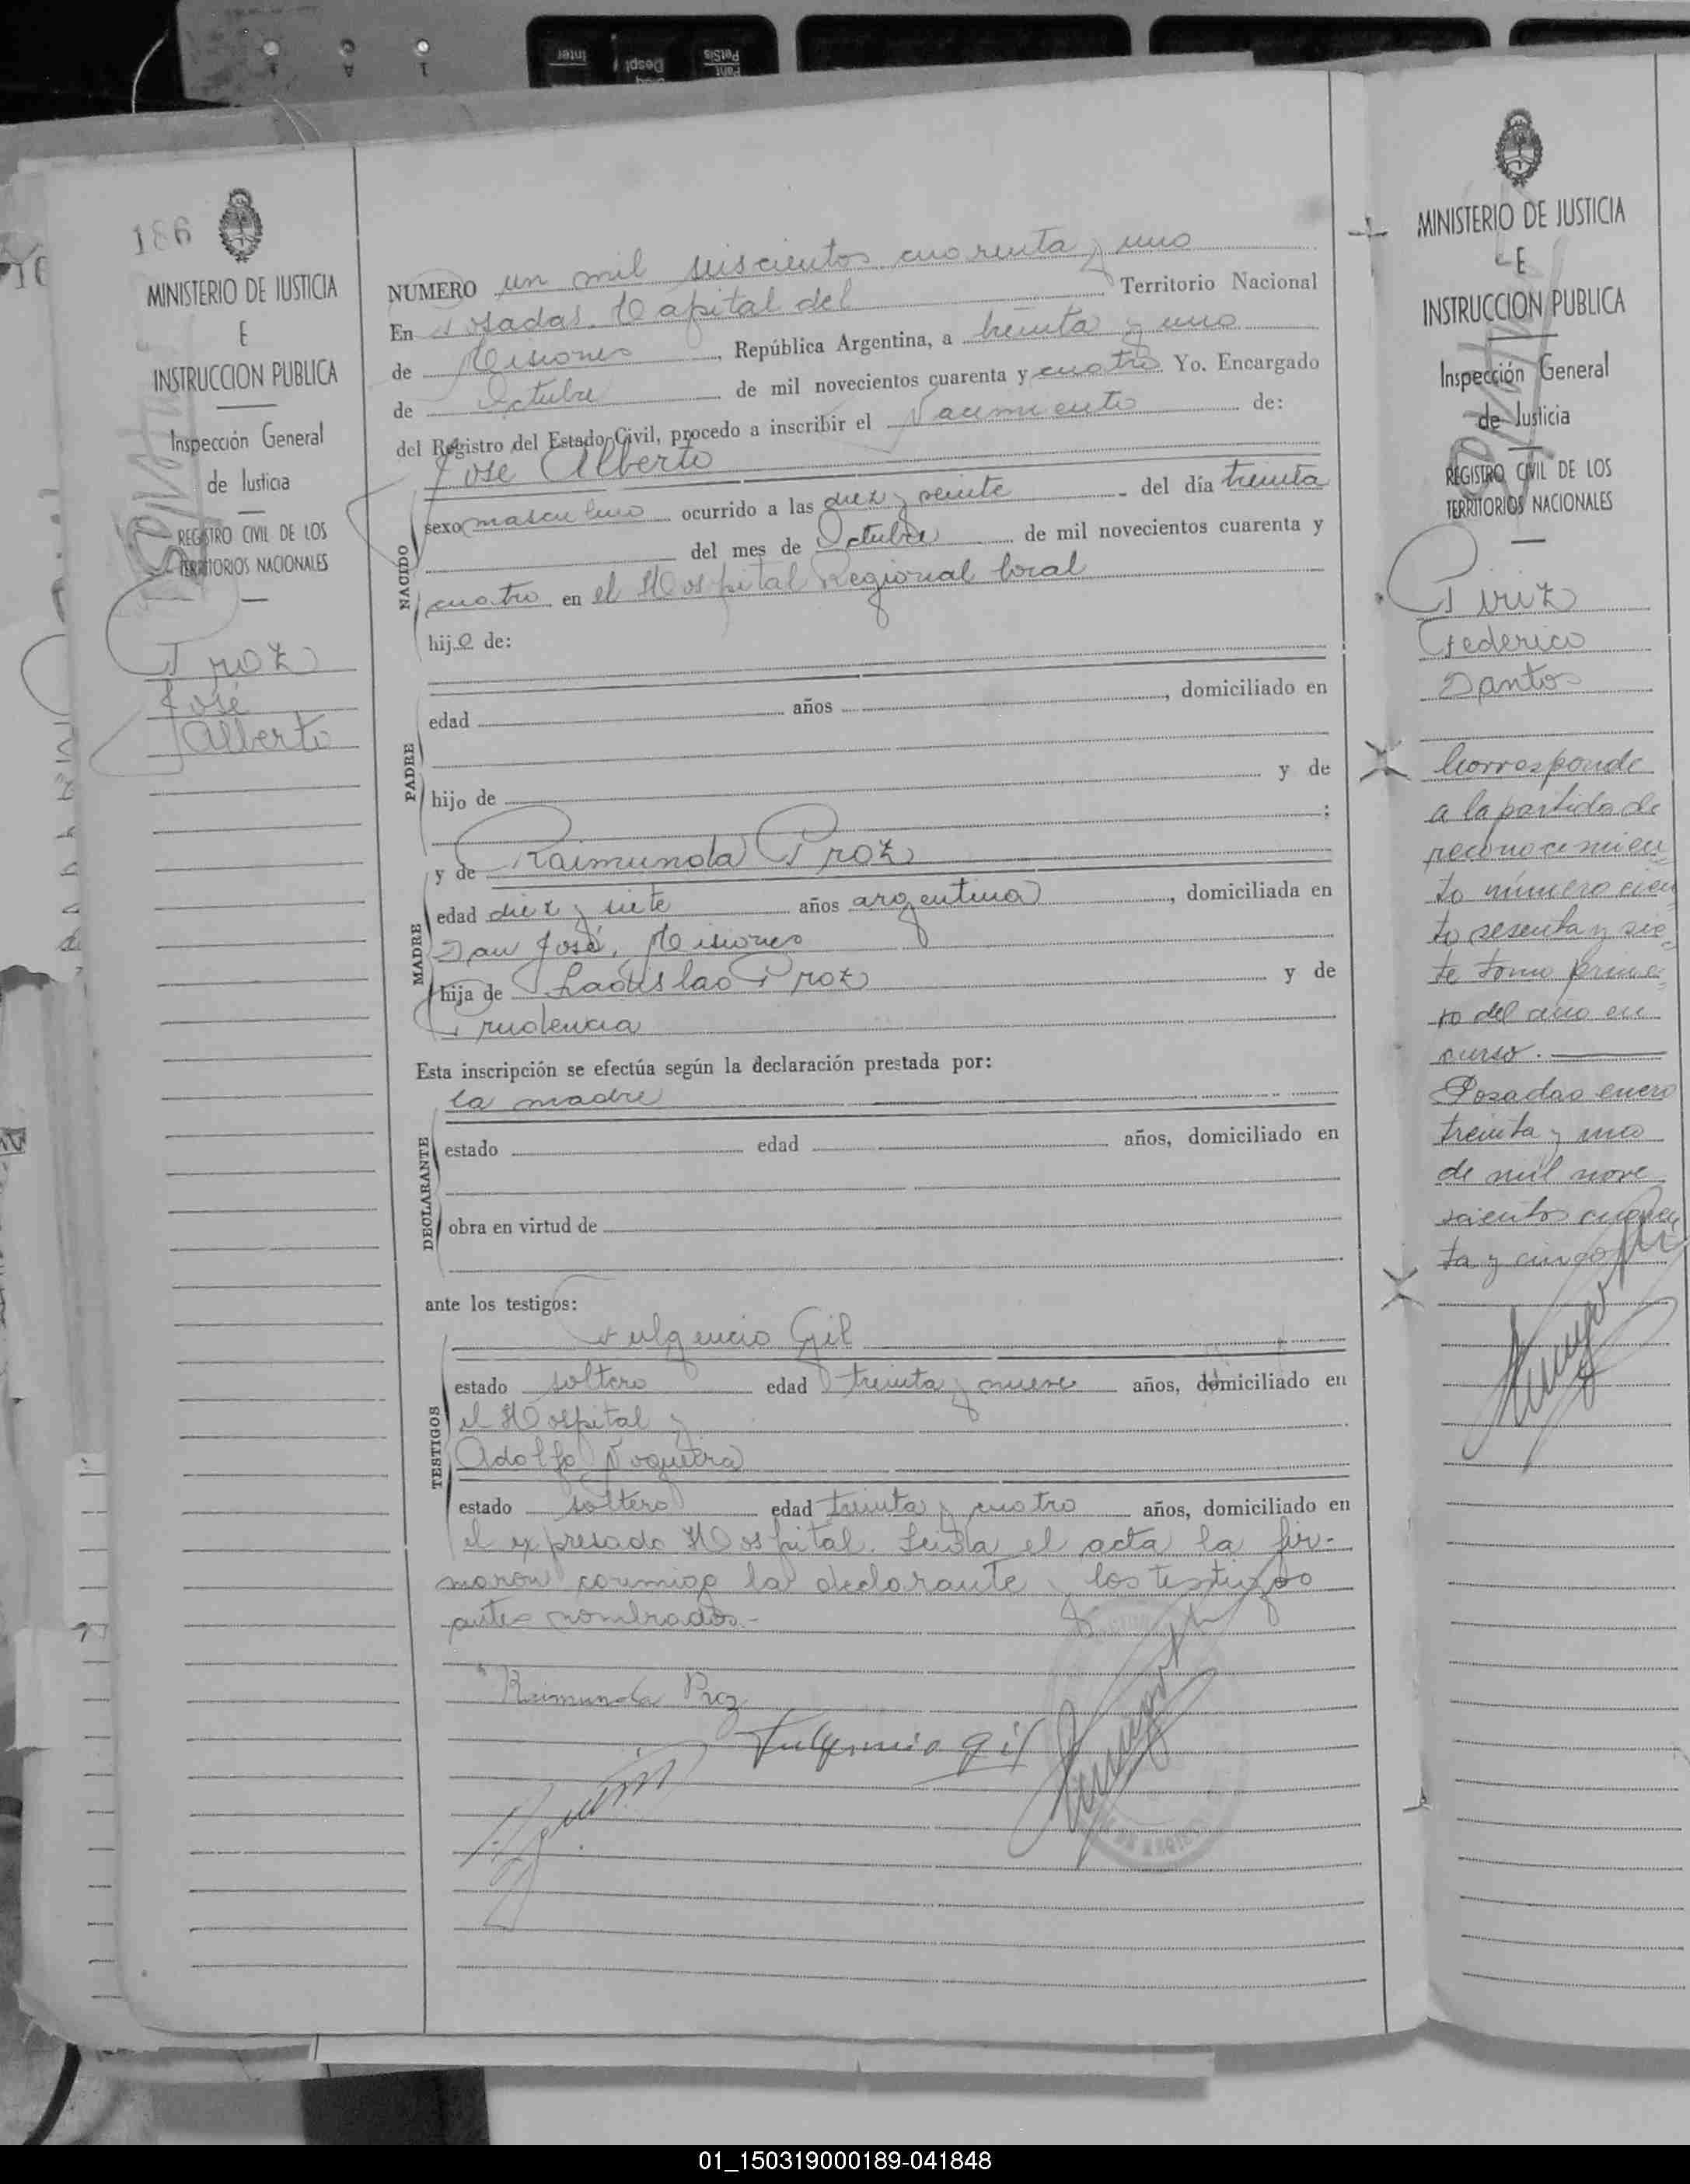 186
MINISTERIO DE JUSTICIA
E
INSTRUCCION PUBLICA
Inspección General
de Justicia
REGISTRO CIVIL DE LOS
TERRITORIOS NACIONALES
Proz
José
Alberto
NUMERO un mil seiscientos cuarenta y uno
En Posadas, Capital del Territorio Nacional
de Misiones, República Argentina, a treinta y uno
de Octubre de mil novecientos cuarenta y cuatro Yo. Encargado
del Registro del Estado Civil, procedo a inscribir el Nacimiento de:
José Alberto
NACIDO
sexo masculino ocurrido a las diez y veinte del día treinta
del mes de Octubre de mil novecientos cuarenta y
cuatro en el Hospital Regional local
hijo de:
PADRE
edad años , domiciliado en
hijo de y de
;
y de Raimunda Proz
MADRE
edad diez y siete años argentina, domiciliada en
San José, Misiones
hija de Ladislao Proz y de
Prudencia
Esta inscripción se efectúa según la declaración prestada por:
la madre
DECLARANTE
estado edad años, domiciliado en
obra en virtud de
ante los testigos:
Fulgencio Gil
TESTIGOS
estado soltero edad treinta y nueve años, domiciliado en
el Hospital y
Adolfo Noguera
estado soltero edad treinta y cuatro años, domiciliado en
el expresado Hospital. Leida el acta la fir-
maron conmigo la declarante y los testigos
antes nombrados.-
Raimunda Proz
Fulgencio gil
MINISTERIO DE JUSTICIA
E
INSTRUCCION PUBLICA
Inspección General
de Justicia
REGISTRO CIVIL DE LOS
TERRITORIOS NACIONALES
Piriz
Federico
Santos
Corresponde
a la partida de
reconocimien
to número cien
to sesenta y sie
te tomo prime
ro del año en
curso.
Posadas enero
treinta y uno
de mil nove
cientos cuaren
ta y cinco
01_150319000189-041848